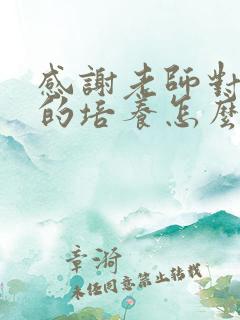 感謝老師對
的培養怎麼
章漪
未经同意禁止转载